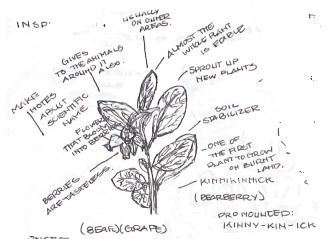 INSP.
USUALLY
ON OUTER
AREAS.
ALMOST THE
WHOLE PLANT
IS EDIBLE
GIVES
TO THE ANIMALS
AROUND IT
ALSO.
SPROUT UP
NEW PLANTS
MAKE
NOTES
ABOUT
SCIENTIFIC
NAME
SOIL
STABILIZER
FLOWERS
THAT BLOOM
INTO BERRIES
ONE OF
THE FIRST
PLANT TO GROW
ON BURNT
LAND.
BERRIES
ARE TASTELESS
KINNIKINNICK
(BEARBERRY)
(BEAR)(GRAPE)
PRONOUNCED:
KINNY-KIN-ICK